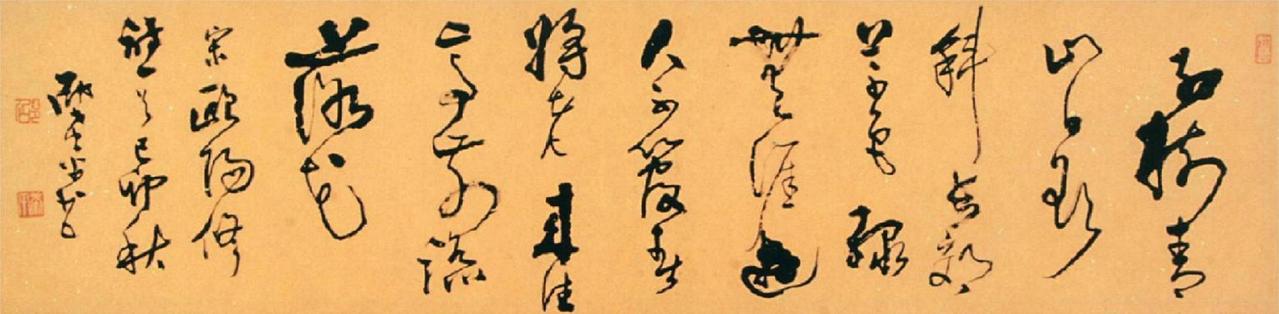 红树青
山日欲
斜長郊
草色綠
無涯遊
人不管春
将老来往
亭前踏
落花
宋歐陽修
己卯秋